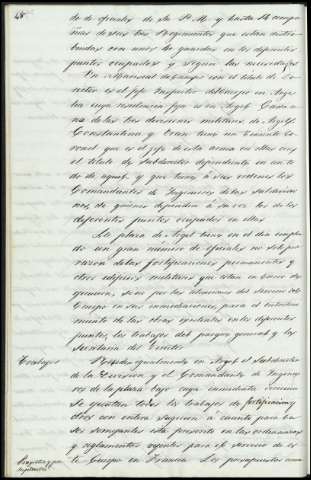 48
do de oficiales de E. M. y hasta 14 compa-
ñias de estos tres Regimientos que estan distri-
buidas con unos la guardia en los diferentes
puntos ocupados y segun las necesidades
con el titulo de Di-
rector es el Jefe Superior del cuerpo en Arge-
lia cuya residencia fija es en Argel. Cada u-
na de las tres divisiones militares de Argel,
Constantina y Oran tiene un Teniente Co-
ronel que es el jefe de esta arma en ellas con
el titulo de Subdirector dependiente en un to-
do de aquel y que tiene á sus ordenes los
Comandantes de Ingenieros de las subdivisio-
nes, de quienes dependen á su vez los de los
diferentes puntos ocupados en ellas
La plaza de Argel tiene en el dia emplea-
do un gran número de oficiales no solo por
razon de las fortificaciones permanentes y
otros edificios militares que estan en
sino por las atenciones del servicio del
Cuerpo en sus inmediaciones, para el entreteni-
miento de las obras existentes en los diferentes
puntos, los trabajos del parque general y la
Secretaria del Director.
Trabajos
Reside igualmente en Argel el Subdirector
de la Division y el Comandante de Ingenie-
ros de la plaza bajo cuya inmediata direccion
se ejecutan todos los trabajos de fortificacion y
otros con entera sugecion á cuanto para ca-
sos semejantes está prevenido en las ordenanzas
y reglamentos vigentes para el servicio de es-
te Cuerpo en Francia. Los presupuestos